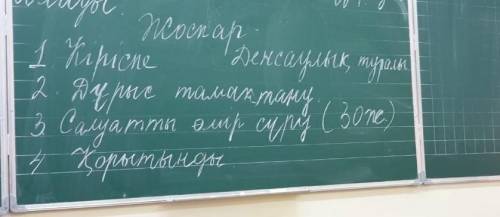 Жоспар.
1 Кіріспе Денсаулық туралы
2. Дұрыс тамақтану.
3. Салуатты өмір сүру (30 же.)
4 Қорытынды